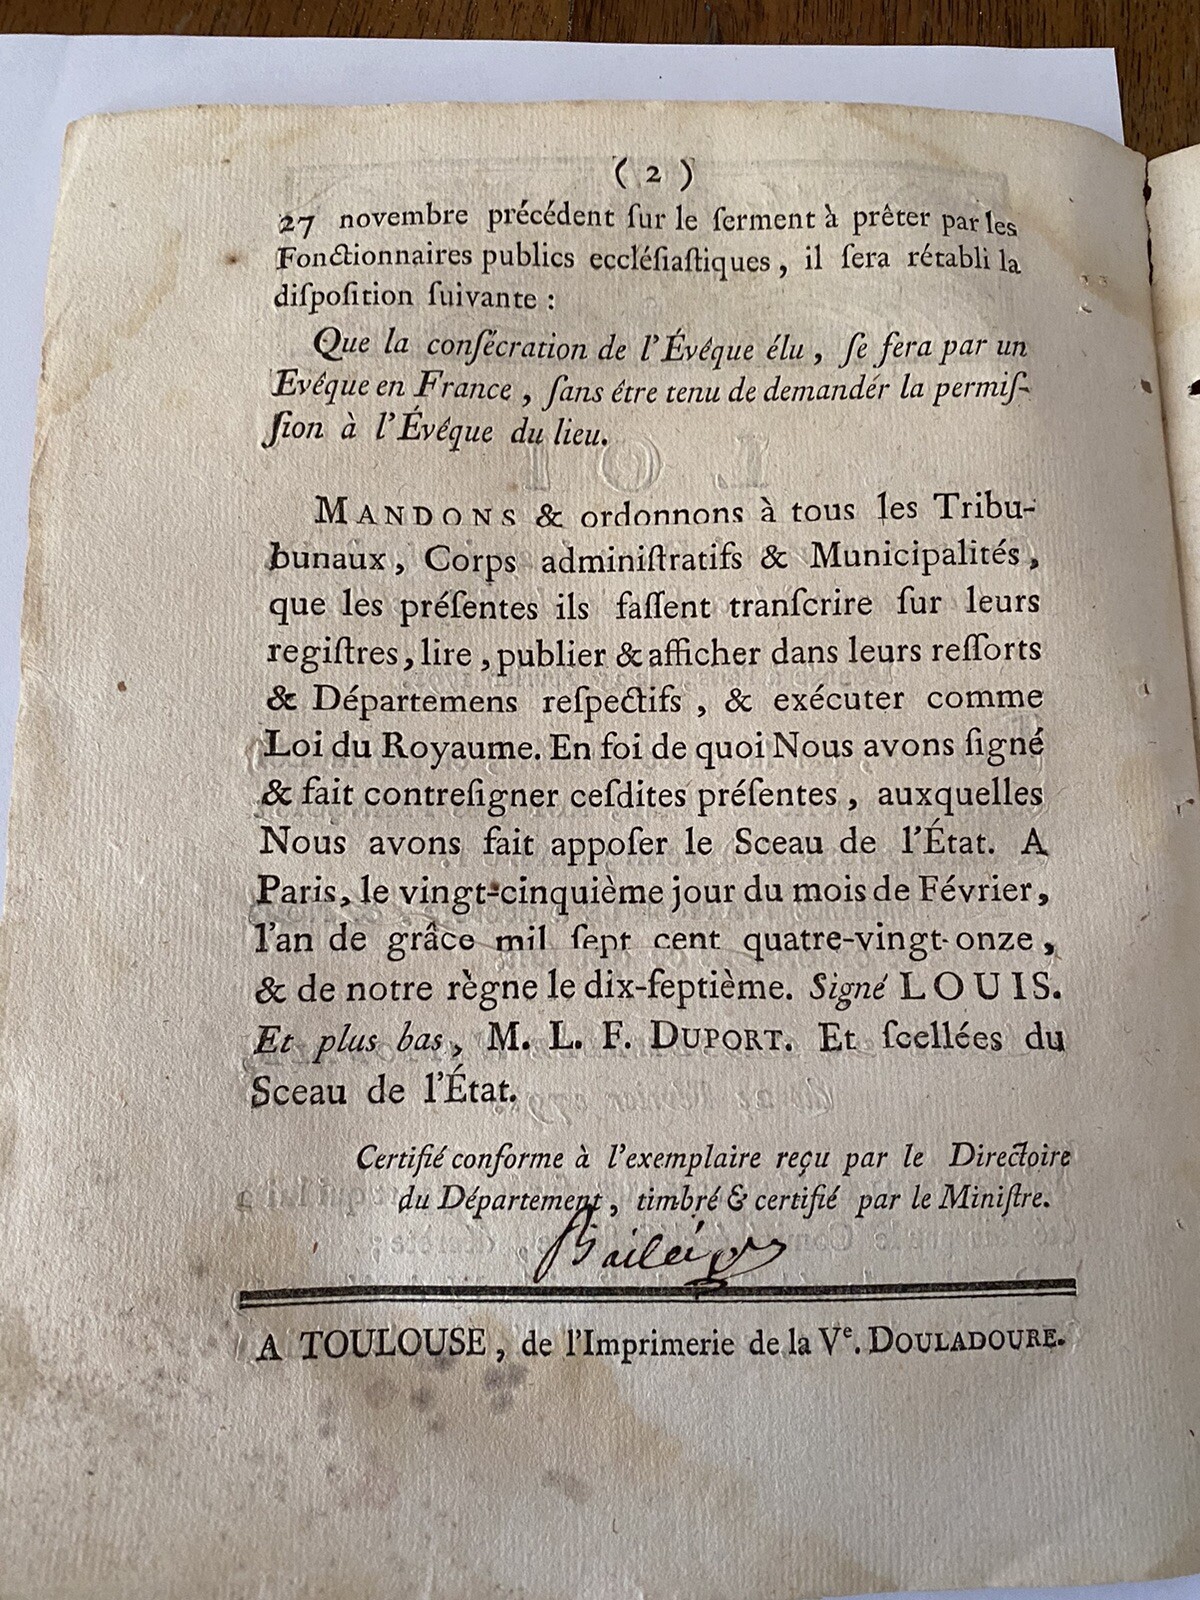 ( 2 )
27 novembre précédent ſur le ſerment à prêter par les
Fonctionnaires publics eccléſiaſtiques, il ſera rétabli la
diſpoſition ſuivante :
Que la conſécration de l'Évêque élu, ſe fera par un
Evêque en France, ſans être tenu de demandér la permiſ-
ſion à l'Évêque du lieu.
MANDONS & ordonnons à tous les Tribu-
bunaux, Corps adminiſtratifs & Municipalités,
que les préſentes ils faſſent tranſcrire ſur leurs
regiſtres, lire, publier & afficher dans leurs reſſorts
& Départemens reſpectifs, & exécuter comme
Loi du Royaume. En foi de quoi Nous avons ſigné
& fait contreſigner ceſdites préſentes, auxquelles
Nous avons fait appoſer le Sceau de l'État. A
Paris, le vingt-cinquième jour du mois de Février,
l'an de grâce mil ſept cent quatre-vingt-onze,
& de notre règne le dix-ſeptième. Signé LOUIS.
Et plus bas, M. L. F. DUPORT. Et ſcellées du
Sceau de l'État.
Certifié conforme à l'exemplaire reçu par le Directoire
du Département, timbré & certifié par le Miniſtre.
A TOULOUSE, de l'Imprimerie de la Ve. DOULADOURE.